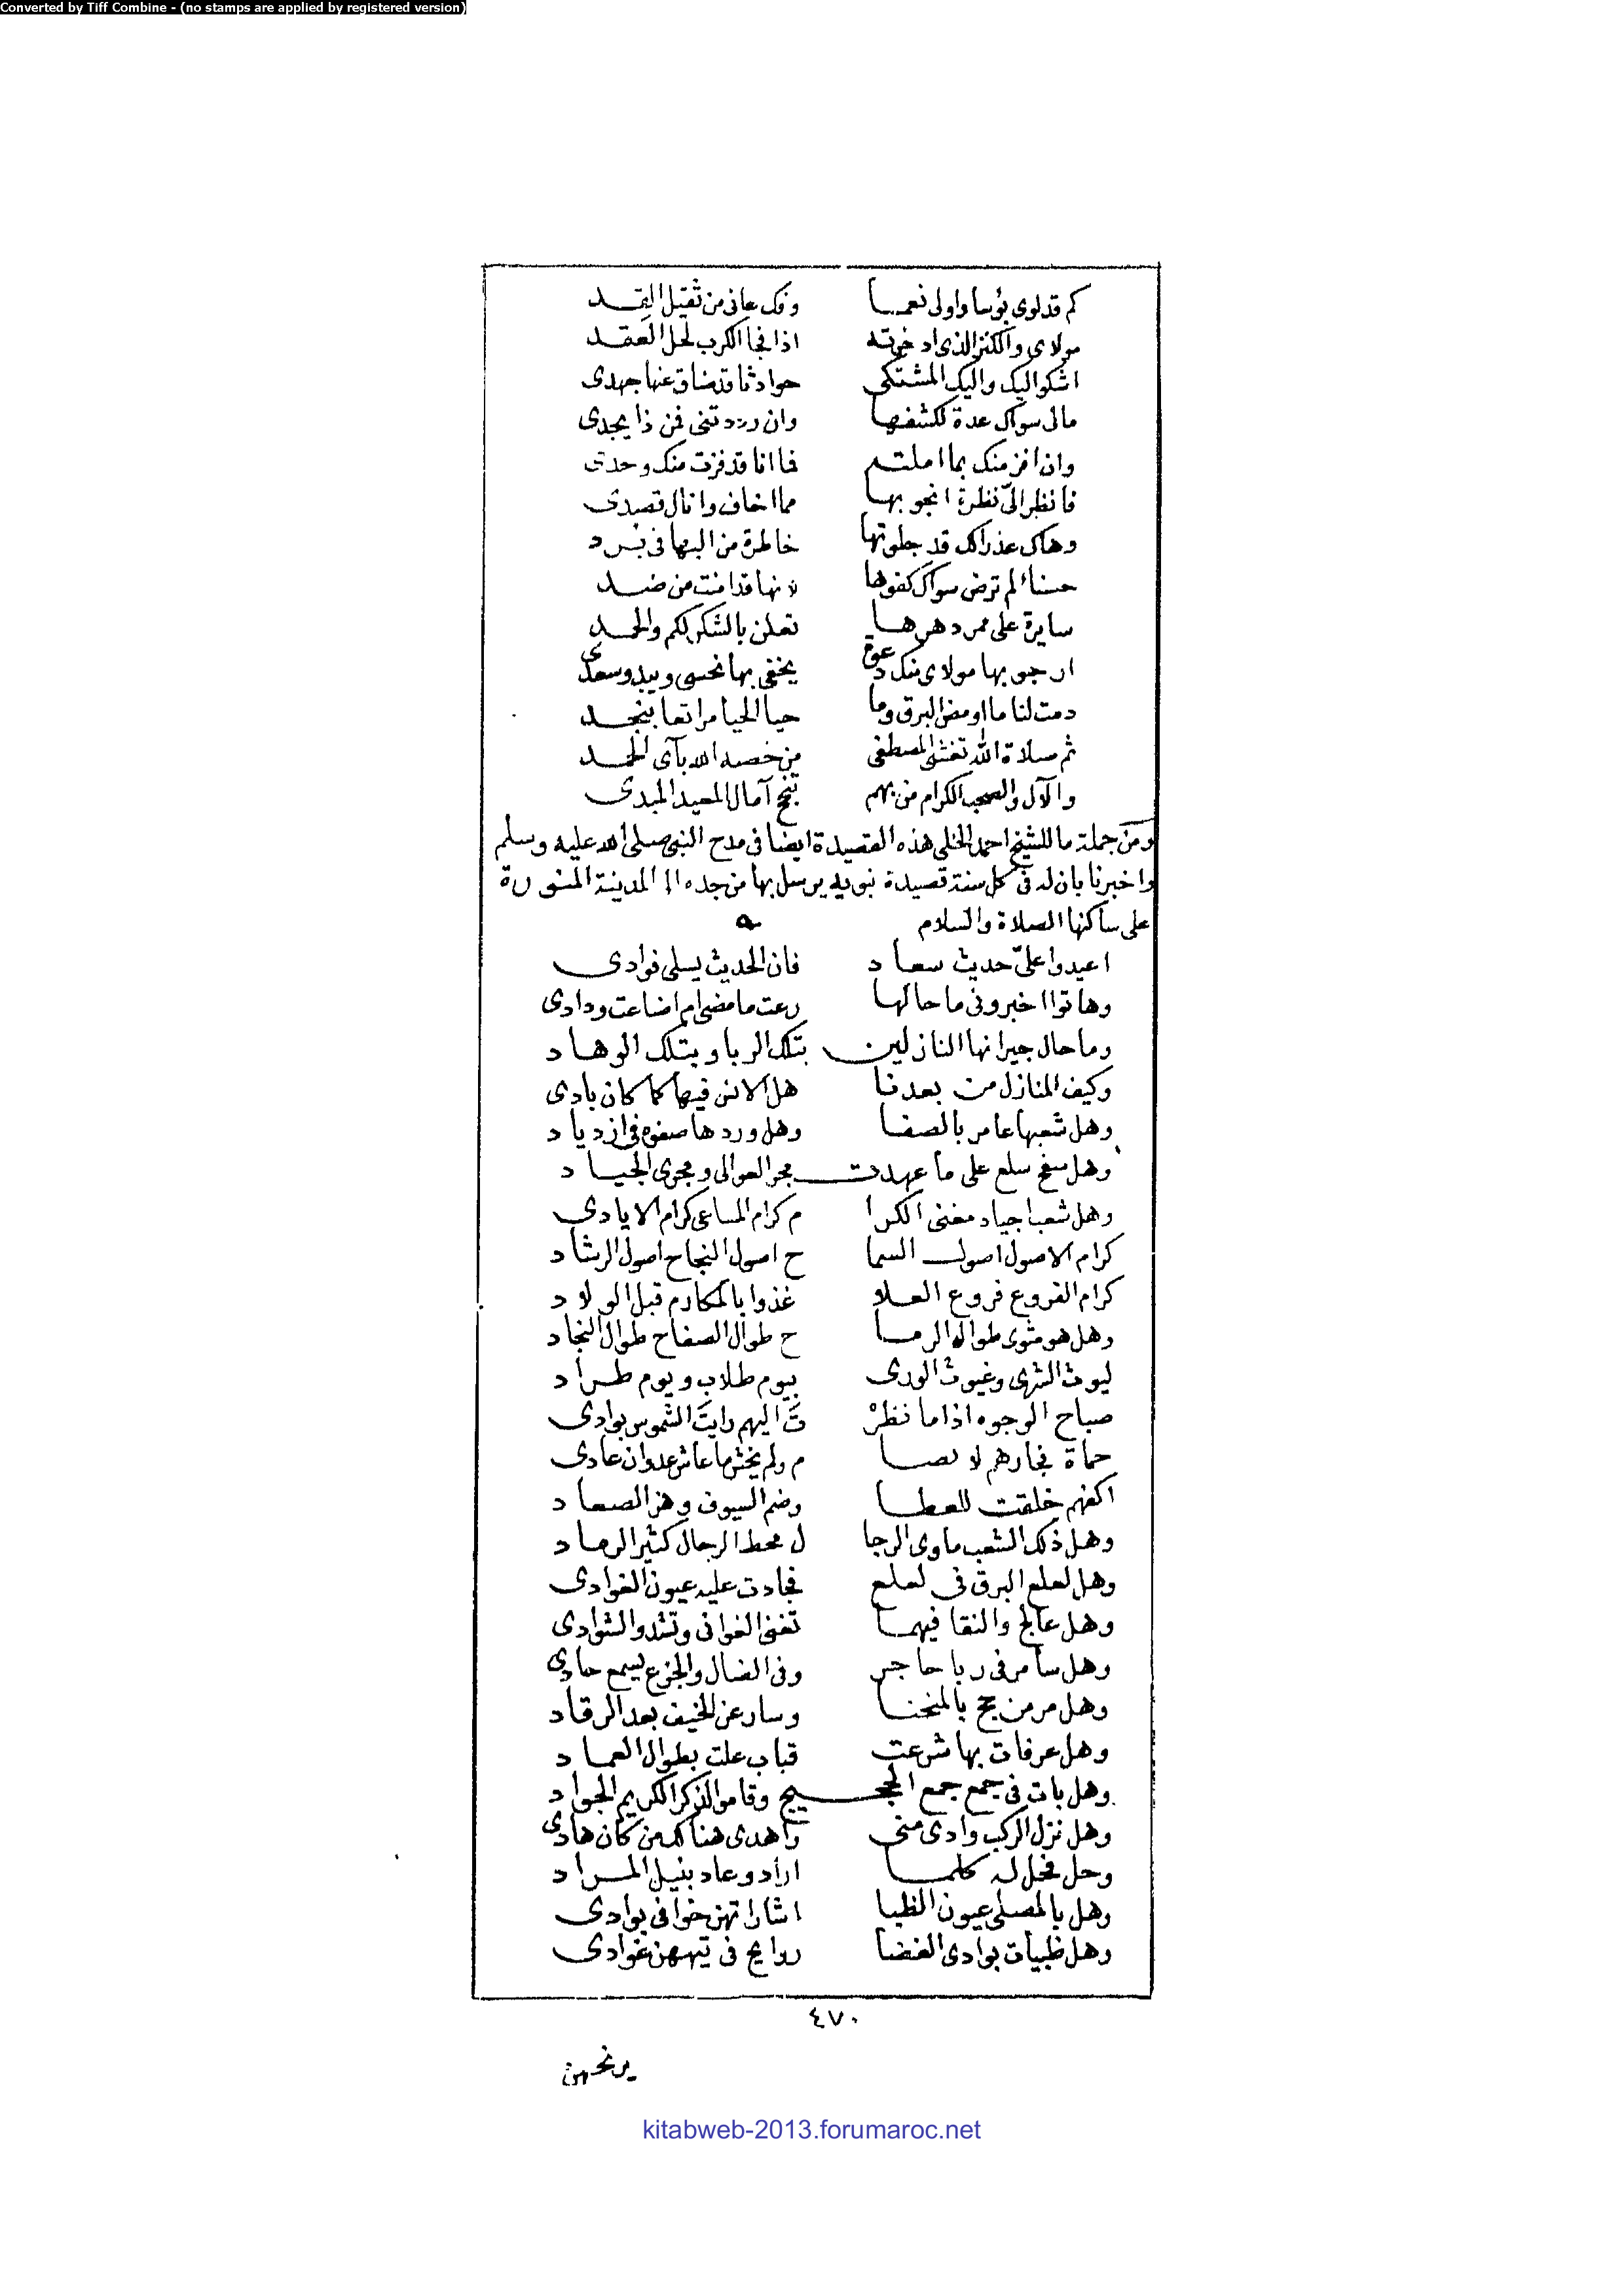 Converted by Tiff Combine - (no stamps are applied by registered version)
كم قد لوى بؤسا واولى نعما وفك عانى من ثقيل القد
مولاى والكنز الذى ادخرته اذا فجا الكرب لحل العقد
اشكو اليك واليك المشتكى حوادثا قد ضاق عنها جهدى
مالى سواك عدة لكشفها وان رددتنى فمن ذا يجدى
وان افز منك بما املته فما انا قد فزت منك وحدى
فانظر الىّ نظرة انجو بها مما اخاف وانال قصدى
وهاك عذرا لك قد جلوتها خاطرة من البها فى برد
حسنائلم ترض سواك كفوها لانها قد امنت من ضد
سايرة على ممر دهرها تعلن بالشكر لكم والحمد
ارجو بها مولاى منك دعوة يخفى بها نحسى ويبدو سعدى
دمت لنا ما اومض البرق وما حيا الحيا مراتعا بنجد
ثم صلاة الله تغشى المصطفى من خصه الله بآى الحمد
والآل والصحب الكرام من بهم تنجح آمال المعيد المبدى
ومن جملة ما للشيخ احمد الخلى هذه القصيدة ايضا فى مدح النبى صلى الله عليه وسلم
واخبرنا بان له فى كل سنة قصيدة نبويه يرسل بها من جده الى المدينة المنورة
على ساكنها الصلاة والسلام
اعيدوا علىّ حديث سعاد فان الحديث يسلى فوادى
وهاتوا اخبرونى ما حالها رعت ما مضى ام اضاعت ودادى
وما حال جيرانها النازلين بتلك الربا وبتلك الوهاد
وكيف المنازل من بعدنا هل الانس فيها كما كان بادى
وهل شعبها عامر بالصفا وهل وردها صفوه فى ازدياد
وهل سفح سلع على ما عهدت مجر العوالى ومجرى الجياد
وهل شعب اجياد مغنى الكرا م كرام المساعى كرام الايادى
كرام الاصول اصول السما ح اصول النجاح اصول الرشاد
كرام الفروع فروع العلا غذوا بالمكارم قبل الولاد
وهل هو مثوى طوال الرما ح طوال الصفاح طوال النجاد
ليوث الشرى وغيوث الورى بيوم طلاب ويوم طراد
صباح الوجوه اذا ما نظرْ تَ اليهم رايتَ الشموس بوادى
حماة فجارهم لا يصا م ولم يخش ما عاش عدوان عادى
اكفهم خلقت للعطا وضم السيوف وهز الصعاد
وهل ذلك الشعب ماوى الرجا ل محط الرحال كثير الرماد
وهل لعلع البرق فى لعلع فجادت عليه عيون الغوادى
وهل عالج والنقا فيهما تغنى الغوانى وتشدو الشوادى
وهل سامر فى ربا حاجر وفى الضال والجزع يسمع حادى
وهل مر من حج بالمنحنا وسار عن الخيف بعد الرقاد
وهل عرفات بها شرعت قباب علت بطوال العماد
وهل بات فى جمع جمع الحجيج وقاموا لذكر الكريم الجواد
وهل نزل الركب وادى منى واهدى هناك من كان هادى
وحل فحل له كلما اراد وعاد بنيل المراد
وهل بالمصلى عيون الظبا اشاراتهن خوافى بوادى
وهل ظبيات بوادى الغضا روايح فى تيههن غوادى
٤٧٠
يرنحهن
kitabweb-2013.forumaroc.net